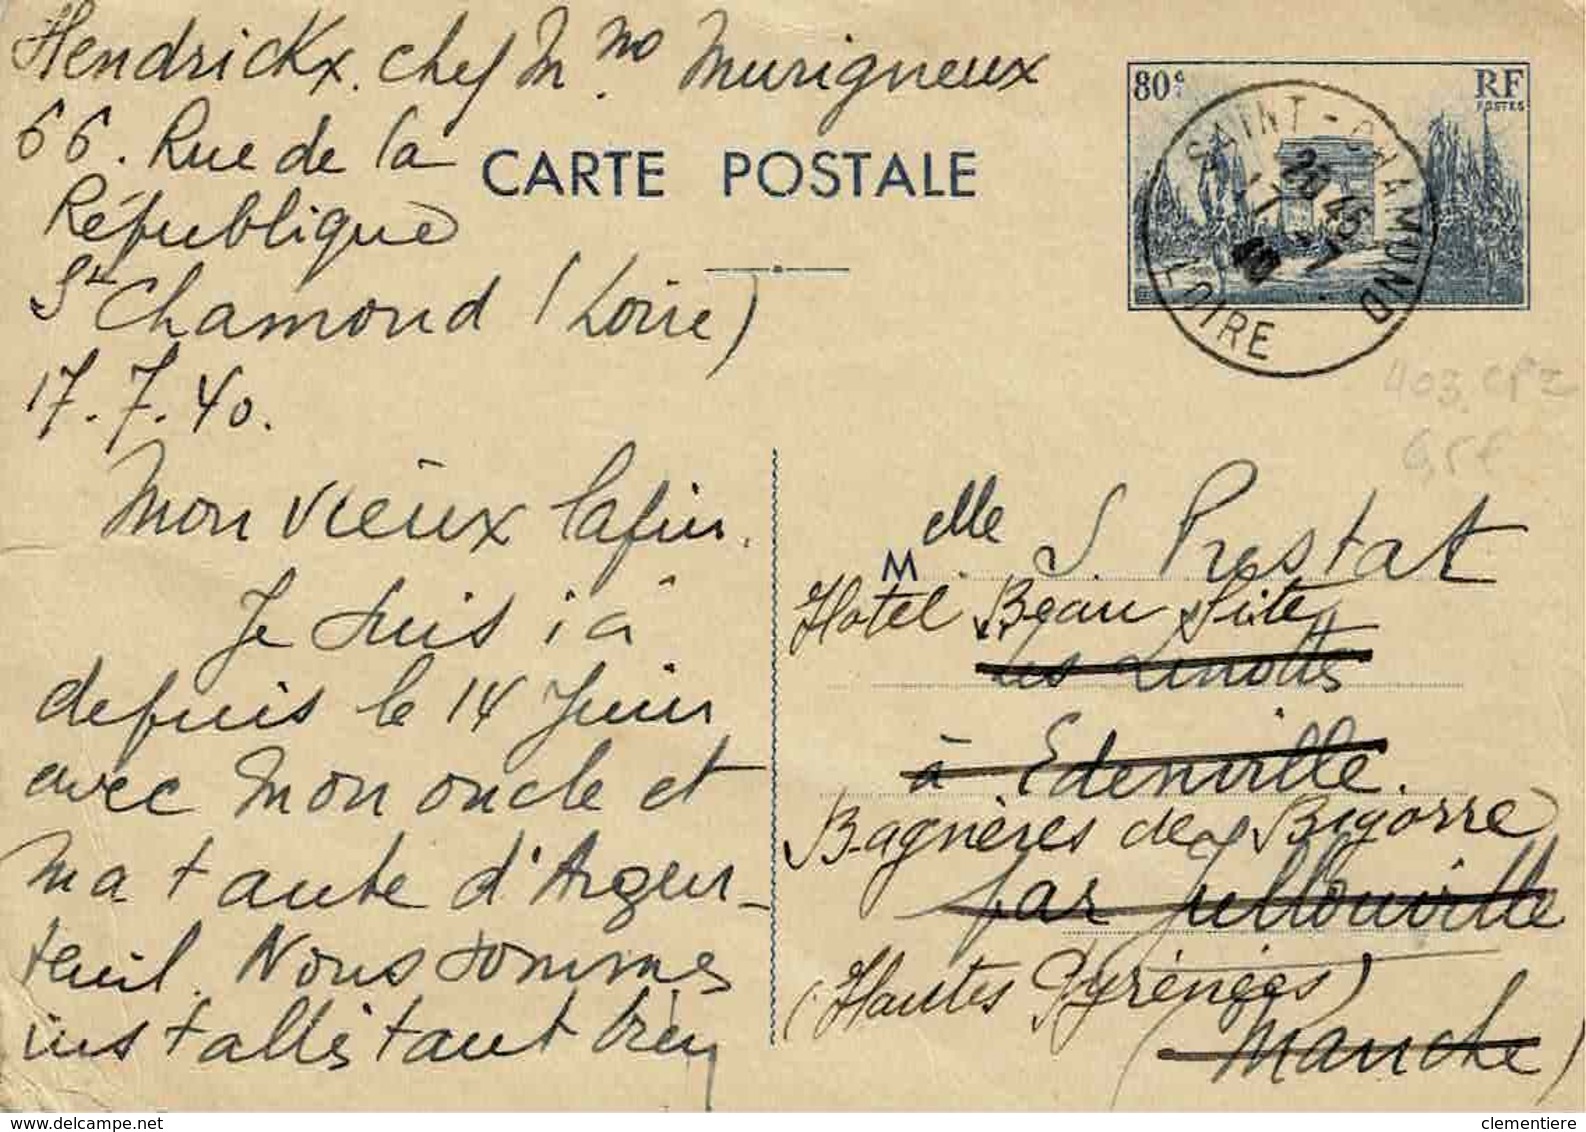 Hendrickx. chez Mme Murigneux
66. Rue de la
République
St Chamond (Loire)
17.7.40.
CARTE POSTALE
80c
RF
POSTES
SAINT-CHAMOND
LOIRE
20 45
403 CP2
6,5€
Mon vieux lapin.
Je suis ici
depuis le 14 Juin
avec mon oncle et
ma tante d'Argen-
teuil. Nous sommes
installés tant bien
Melle S. Prestat
Hotel Beau Site
Les Linottes
à Edenville.
Bagnères de Bigorre
par Jullouville
(Hautes Pyrénées)
(Manche)
www.delcampe.net
clementiere